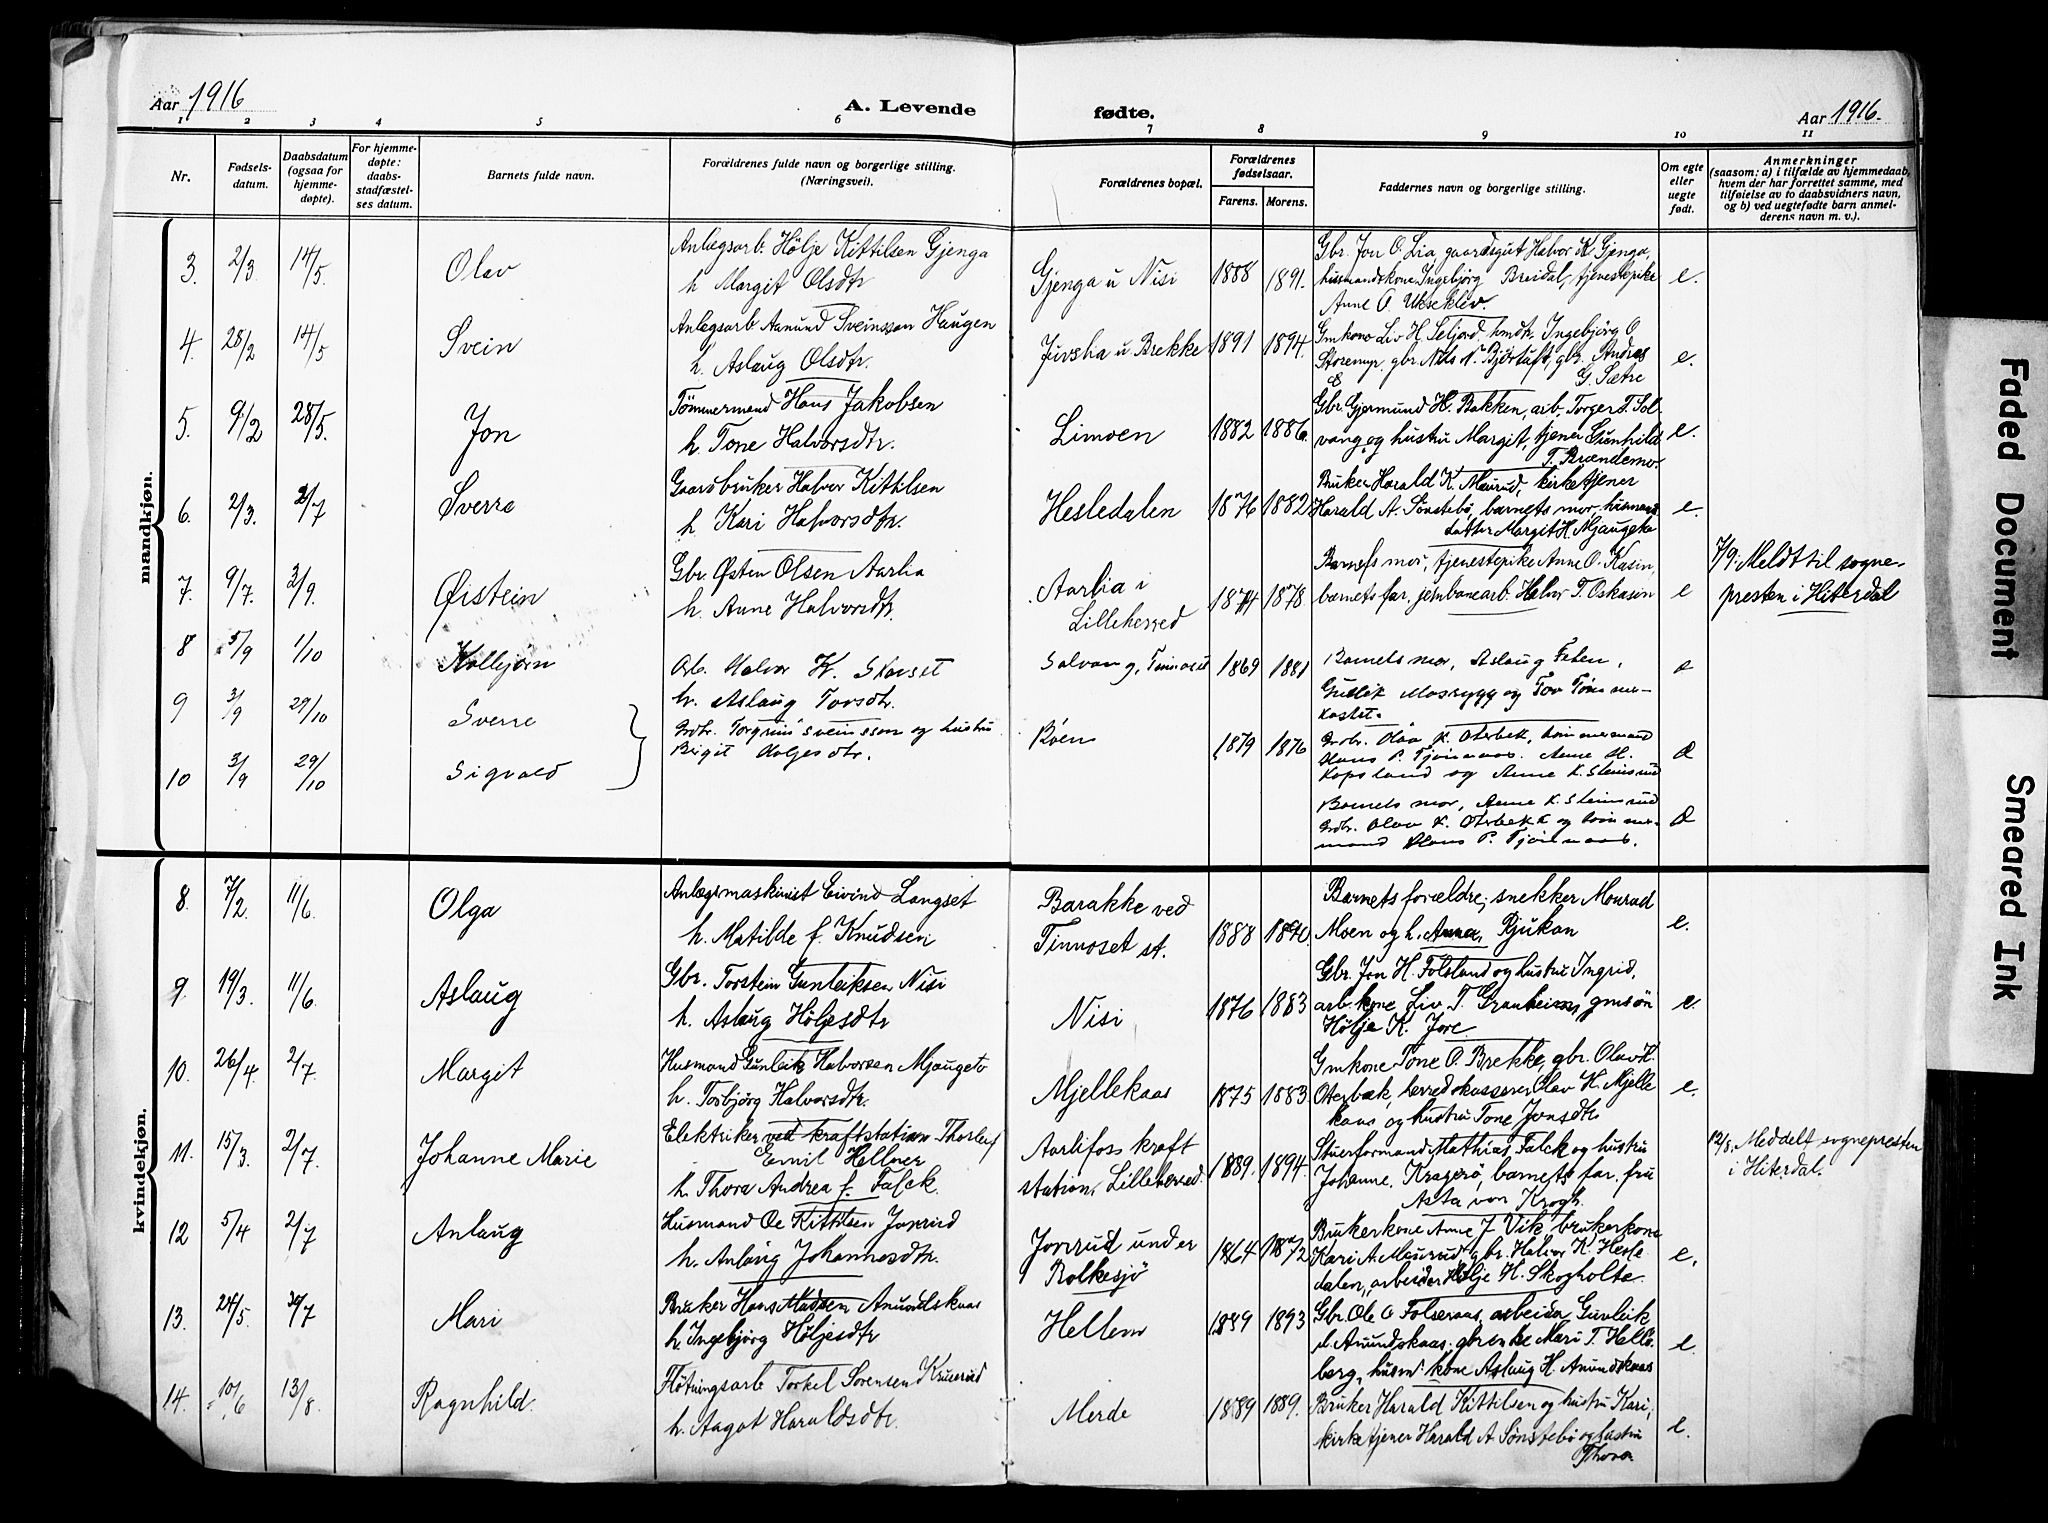 Aar 1916
A. Levende
fødte.
Aar 1916.
1 2 3 4 5 6 7 8 9 10 11
Nr.
Fødsels-
datum.
Daabsdatum
(ogsaa for
hjemme-
døpte).
For hjemme-
døpte:
daabs-
stadfæstel-
ses datum.
Barnets fulde navn.
Forældrenes fulde navn og borgerlige stilling.
(Næringsvei).
Forældrenes bopæl.
Forældrenes
fødselsaar.
Farens. Morens.
Faddernes navn og borgerlige stilling.
Om egte
eller
uegte
født.
Anmerkninger
(saasom: a) i tilfælde av hjemmedaab,
hvem der har forrettet samme, med
tilføielse av to daabsvidners navn,
og b) ved uegtefødte barn anmel-
derens navn m. v.).
mandkjøn.
3. 2/3. 14/5. Olav
Anlægsarb. Hølje Kittilsen Gjenga
h. Margit Olsdtr.
Gjenga u Nisi 1888 1891.
Gbr. Jon O. Lia, gaardsgut Halvor K. Gjenga,
husmandskone Ingebjørg Breidal, tjenestepike
Anne O. Ukseklev.
e.
4. 28/2 14/5 Svein
Anlægsarb. Aanund Sveinsson Haugen
h. Aslaug Olsdtr.
Juvslia u. Brekke 1891 1894.
Gmkone Liv H. Seljord, hmdtr. Ingebjörg O.
gbr. Nils gbr. Andres
G. Sætre
e.
5. 9/2 28/5. Jon
Tømmermand Hans Jakobsen
h. Tone Halvorsdtr.
Limoen 1882 1886.
Gbr. Gjermund H. Bakken, arb. Torger T. Sol-
vang og hustru Margit, tjener Gunhild
T. Brændemo.
e.
6. 2/3. 2/7 Sverre
Gaardbruker Halvor Kittilsen
h. Kari Halvorsdtr.
Hesledalen 1876 1882
Bruker Harald K. Meurud, kirketjener
Harald A. Sønstebö, barnets mor, husmands
datter Margit H. Mjaugeto
e.
7. 9/7. 3/9. Øistein
Gbr. Østen Olsen Aarlia
h. Anne Halvorsdtr.
Aarlia i
Lilleherred
1874 1878
Barnets mor, tjenestepike Anne O. Kasin,
barnets far, jernbanearb. Halvor T. Oskasin
e
7/9. Meldt til sogne-
presten i Hiterdal
8 5/9 1/10 Kolbjørn
Arb. Halvor K. Storset
h. Aslaug Torsdtr.
Solvang, Tinnoset 1869 1881
Barnets mor, Aslaug Felen,
Gullik Mosrygg og Tov Tømmer-
kastet.
e
9 3/9 29/10 Sverre
Grdbr. Torgrim Sveinsson og hustru
Birgit Holjesdtr.
Bøen 1879 1876
Grdbr. Olav K. Oterbek, tømmermand
Hans P. Tjönnaas. Anne H.
Kopsland og Anne K. Steinsrud
e
10 3/9 29/10 Sigvald
Barnets mor, Anne K. Steinsrud
Grdbr. Olav K. Oterbekk og tømmer-
mand Hans P. Tjönnaas.
e
kvindekjøn.
8. 7/2. 11/6. Olga
Anlægsmaskinist Eivind Langset
h. Matilde f. Knudsen
Barakke ved
Tinnoset st.
1888 1890
Barnets forældre; snekker Monrad
Moen og h. Anna, Rjukan
e.
9. 19/3. 11/6. Aslaug
Gbr. Torstein Gunleiksen Nisi
h. Aslaug Höljesdtr
Nisi 1876 1883
Gbr. Jon H. Folsland og hustru Ingrid,
arb.kone Liv T. Granheim, gmsön
Hölje K. Jore
e.
10. 26/4. 2/7. Margit
Husmand Gunleik Halvorsen Mjaugeto
h. Torbjörg Halvorsdtr.
Mjellekaas 1875 1883
Gmkone Tone O. Brekke, gbr. Olav K.
Oterbæk, herredskasserer Olav H. Mjelle
kaas og hustru Tone Jonsdtr
e.
11. 15/3. 2/7. Johanne Marie
Elektriker ved kraftstation Thorleif
Emil Hellner
h. Thora Andrea f. Falck.
Aarlifoss kraft
station, Lilleherred.
1889. 1894.
Stuerformand Mathias Falck og hustru
Johanne, Kragerø, barnets far, fru
Asta von Krogh.
12/8. Meddelt sognepresten
i Hiterdal.
12 5/4 2/7 Anlaug
Husmand Ole Kittilsen Jonrud
h. Anlaug Johannesdtr.
Jonrud under
Bolkesjö
1864 1872
Brukerkone Anne J. Vik, brukerkone
Kari A. Meurud, gbr. Halvor K. Hesle
dalen, arbeider Hölje H. Skogholte.
e.
13. 24/5. 30/7 Mari
Bruker Hans Madsen Anundskaas
h. Ingebjörg Höljesdtr
Hellem 1889 1893
Gbr. Ole O. Folseraas, arbeider Gunleik
M. Anundskaas, gbrenke Mari T. Helle-
berg, husm. kone Aslaug H. Anundskaas
e.
14. 10/6 13/8. Ragnhild.
Flötningsarb. Torkel Sörensen Kruserud
h. Aagot Haraldsdtr.
Merde 1889 1889.
Bruker Harald Kittilsen og hustru Kari,
kirketjener Harald A. Sønstebö og hustru
Thora
e.
Faded Document
Smeared Ink